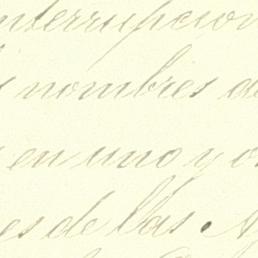 interrupcion
nombres de
en uno y o
es de las.